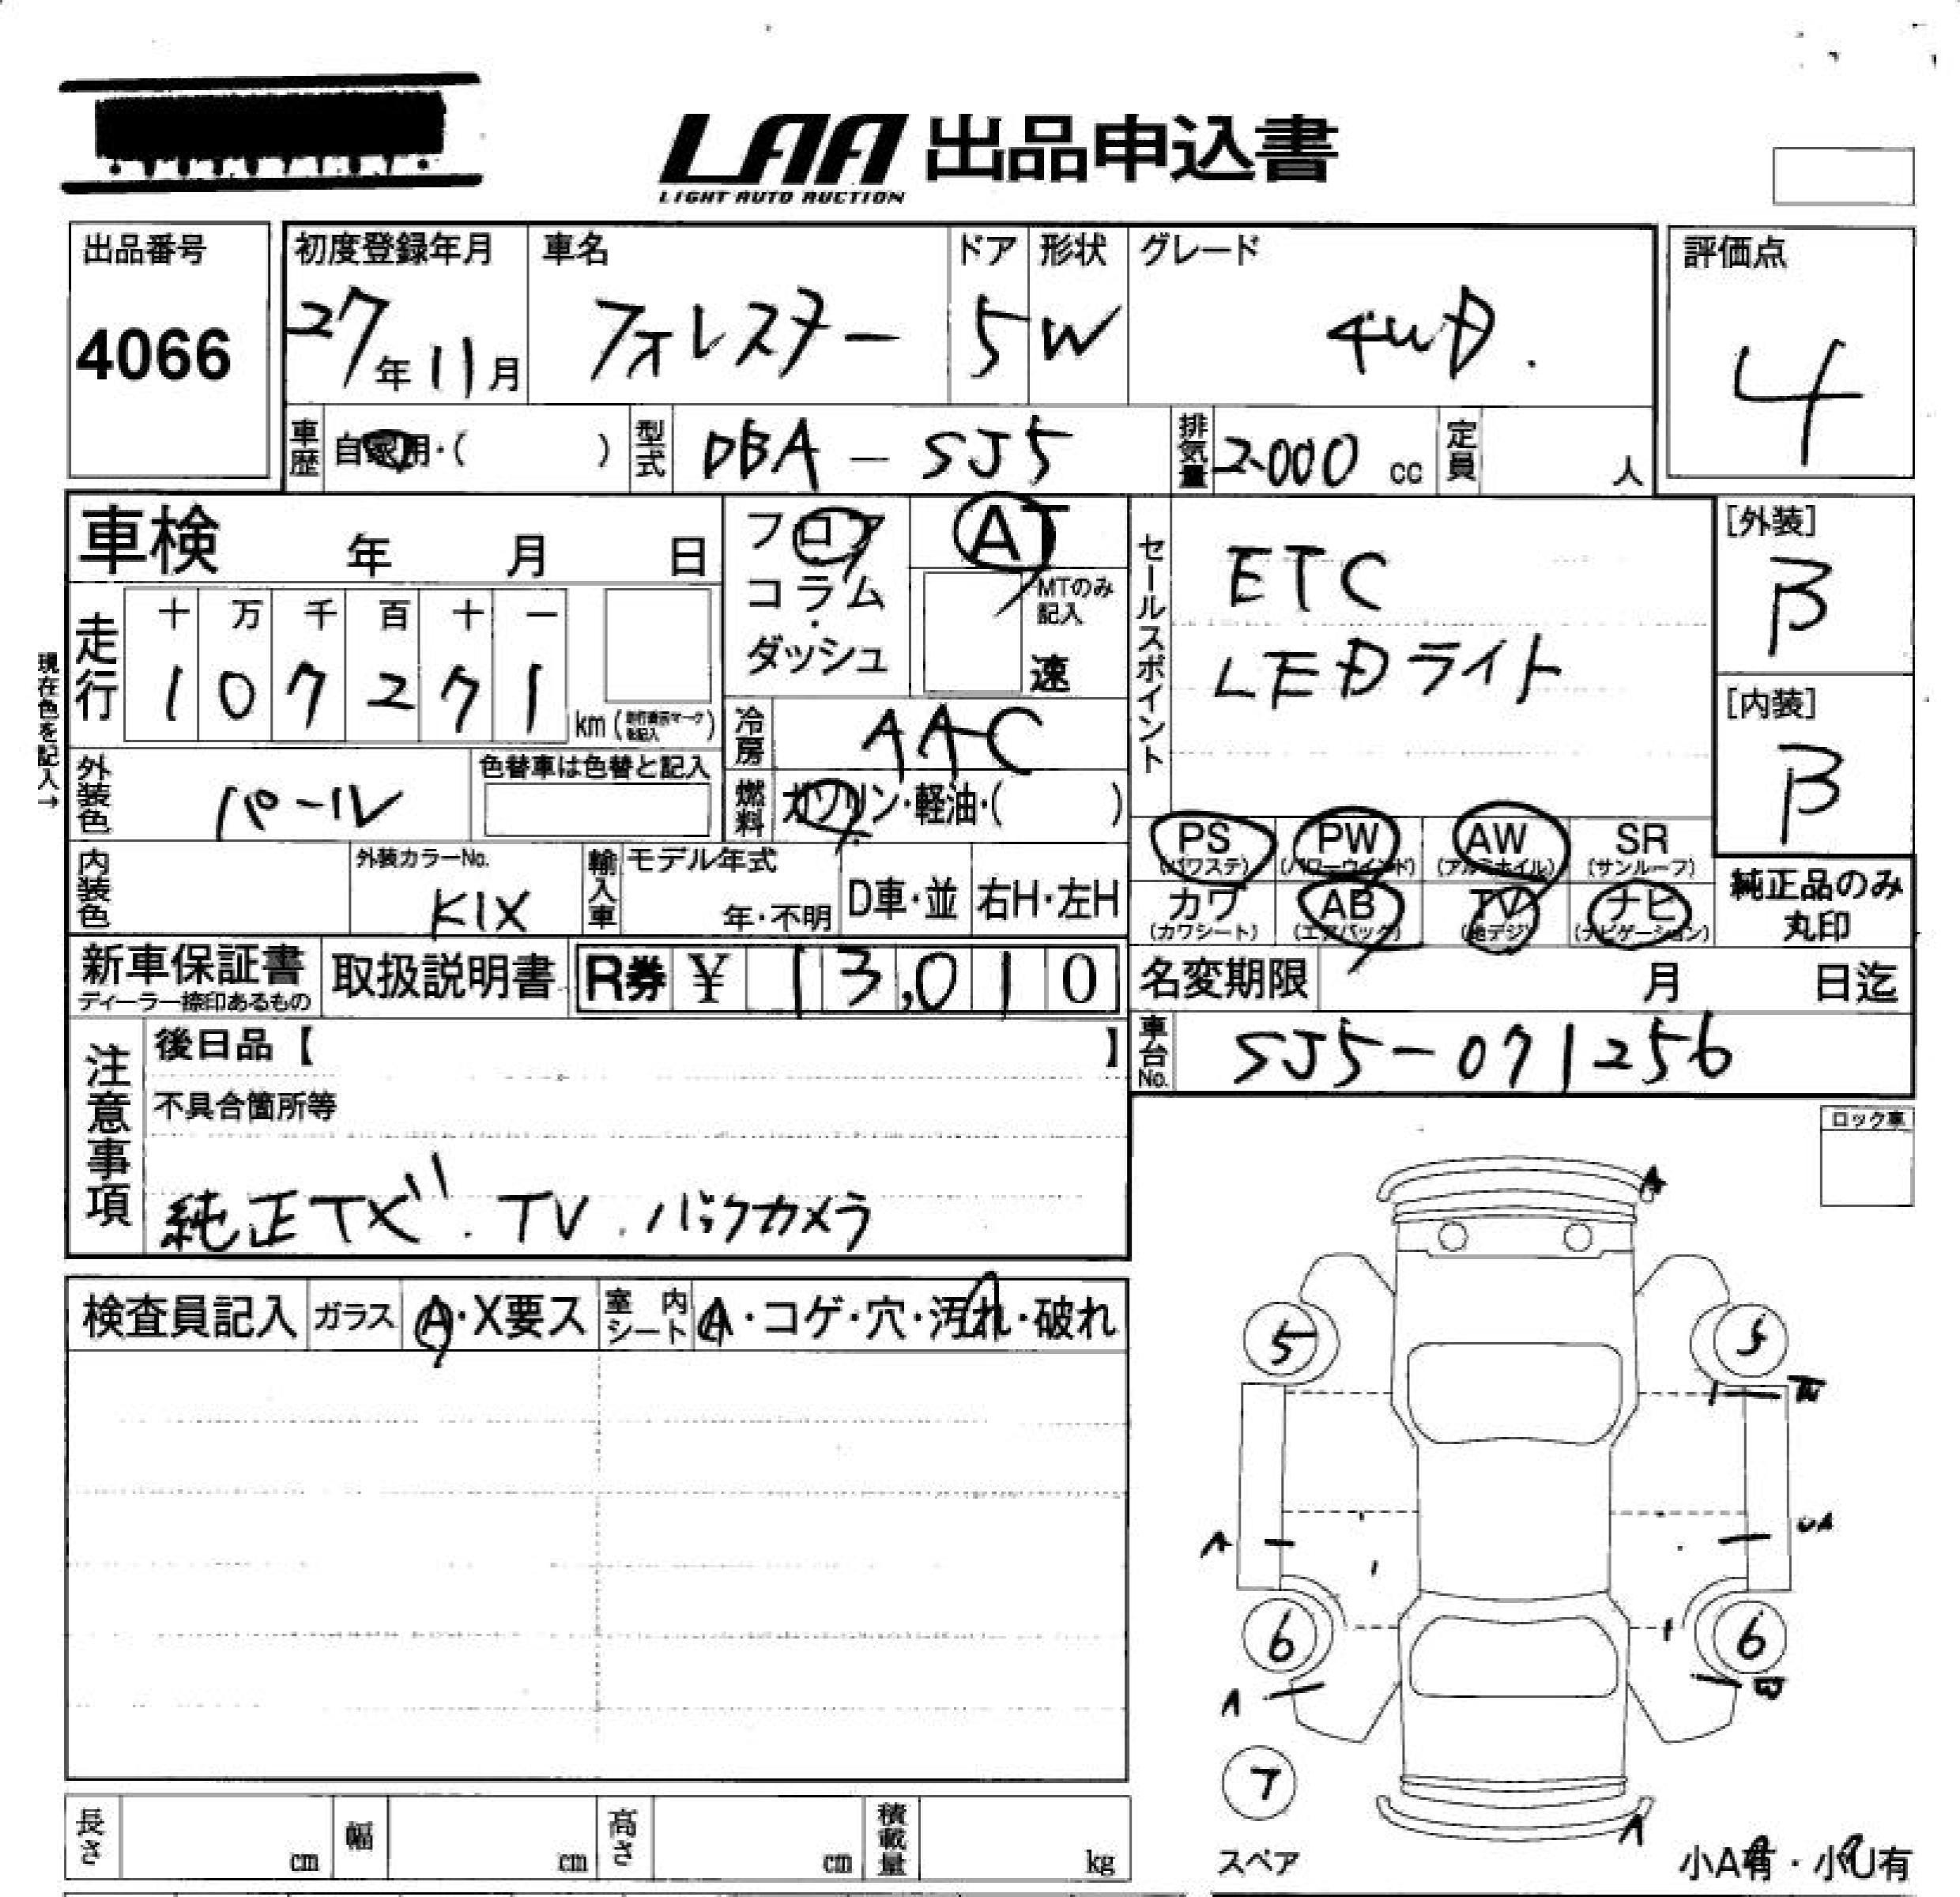 LAA 出品申込書
LIGHT AUTO AUCTION
出品番号
4066
初度登録年月
27年11月
車名
フォレスター
ドア
5
形状
W
グレード
4WD.
評価点
4
車歴
自家用・( )
型式
DBA-SJ5
排気量
2000 cc
定員
人
車検 年 月 日
フロア
コラム
ダッシュ
AT
MTのみ記入
速
セールスポイント
ETC
LEDライト
[外装]
B
[内装]
B
現在色を記入→
走行
十 万 千 百 十 一
1 0 7 2 7 1
km
冷房
AAC
外装色
パール
色替車は色替と記入
燃料
ガソリン・軽油・( )
PS
(パワステ)
PW
(パワーウインド)
AW
(アルミホイル)
SR
(サンルーフ)
カワ
(カワシート)
AB
(エアバック)
TV
(地デジ)
ナビ
(ナビゲーション)
純正品のみ
丸印
内装色
外装カラーNo.
K1X
輸入車
モデル年式
年・不明
D車・並
右H・左H
新車保証書
ディーラー捺印あるもの
取扱説明書
R券 ¥ 13,010
名変期限 月 日迄
車台No.
SJ5-071256
注意事項
後日品【 】
不具合箇所等
純正ナビ.TV.バックカメラ
ロック車
検査員記入
ガラス
A・X要ス
室内シート
A・コゲ・穴・汚れ・破れ
A
5
5
W
A
UA
6
6
A
W
7
スペア
A
小A有・小U有
長さ
cm
幅
cm
高さ
cm
積載量
kg